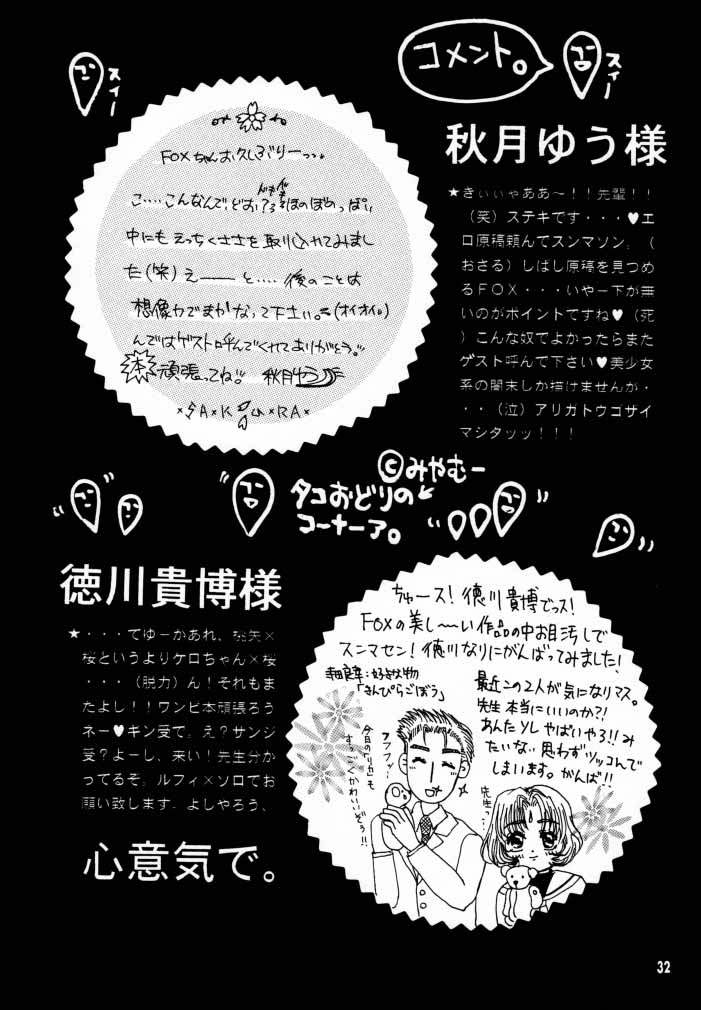 コメント。
スィー
スィー
秋月ゆう様
FOXちゃんお久しぶりーっ
こ‥‥こんなんでどお?ほのぼのっぽい
中にもえっちくささを取り入れてみまし
た(笑)え――と‥‥後のことは
想像力でまかなって下さい。(オイオイ。)
んではゲストに呼んでくれてありがとう。
本頑張ってね。 秋月ゆう
×SAKURA×
★きぃぃゃああ〜!!先輩!!
(笑)ステキです・・・♥エ
ロ原稿頼んでスンマソン。(
おさる)しばし原稿を見つめ
るFOX・・・いやー下が無
いのがポイントですね♥(死
)こんな奴でよかったらまた
ゲスト呼んで下さい♥美少女
系の闇末しか描けませんが・
・・(泣)アリガトウゴザイ
マシタッッ!!!
©みやむー
タコおどりの
コーナーア。
徳川貴博様
★・・・てゆーかあれ、桃矢×
桜というよりケロちゃん×桜
・・・(脱力)ん!それもま
たよし!!ワンピ本頑張ろう
ネー♥キン受で。え?サンジ
受?よーし、来い!先生分か
ってるぞ。ルフィ×ゾロでお
願い致します。よしやろう、
心意気で。
ちゅース!徳川貴博でっス!
FOXの美し〜い作品の中お目汚しで
スンマセン!徳川なりにがんばってみました!
寺田良幸:好きな物
「きんぴらごぼう」
最近この2人が気になりマス。
先生本当にいいのか?!
あんたソレやばいやろ!!み
たいな。思わずツッコんで
しまいます。がんば!!
フフフッ…
今日の「リカ」も
すっごくかわいいぞぅ!!
先生っ…
32